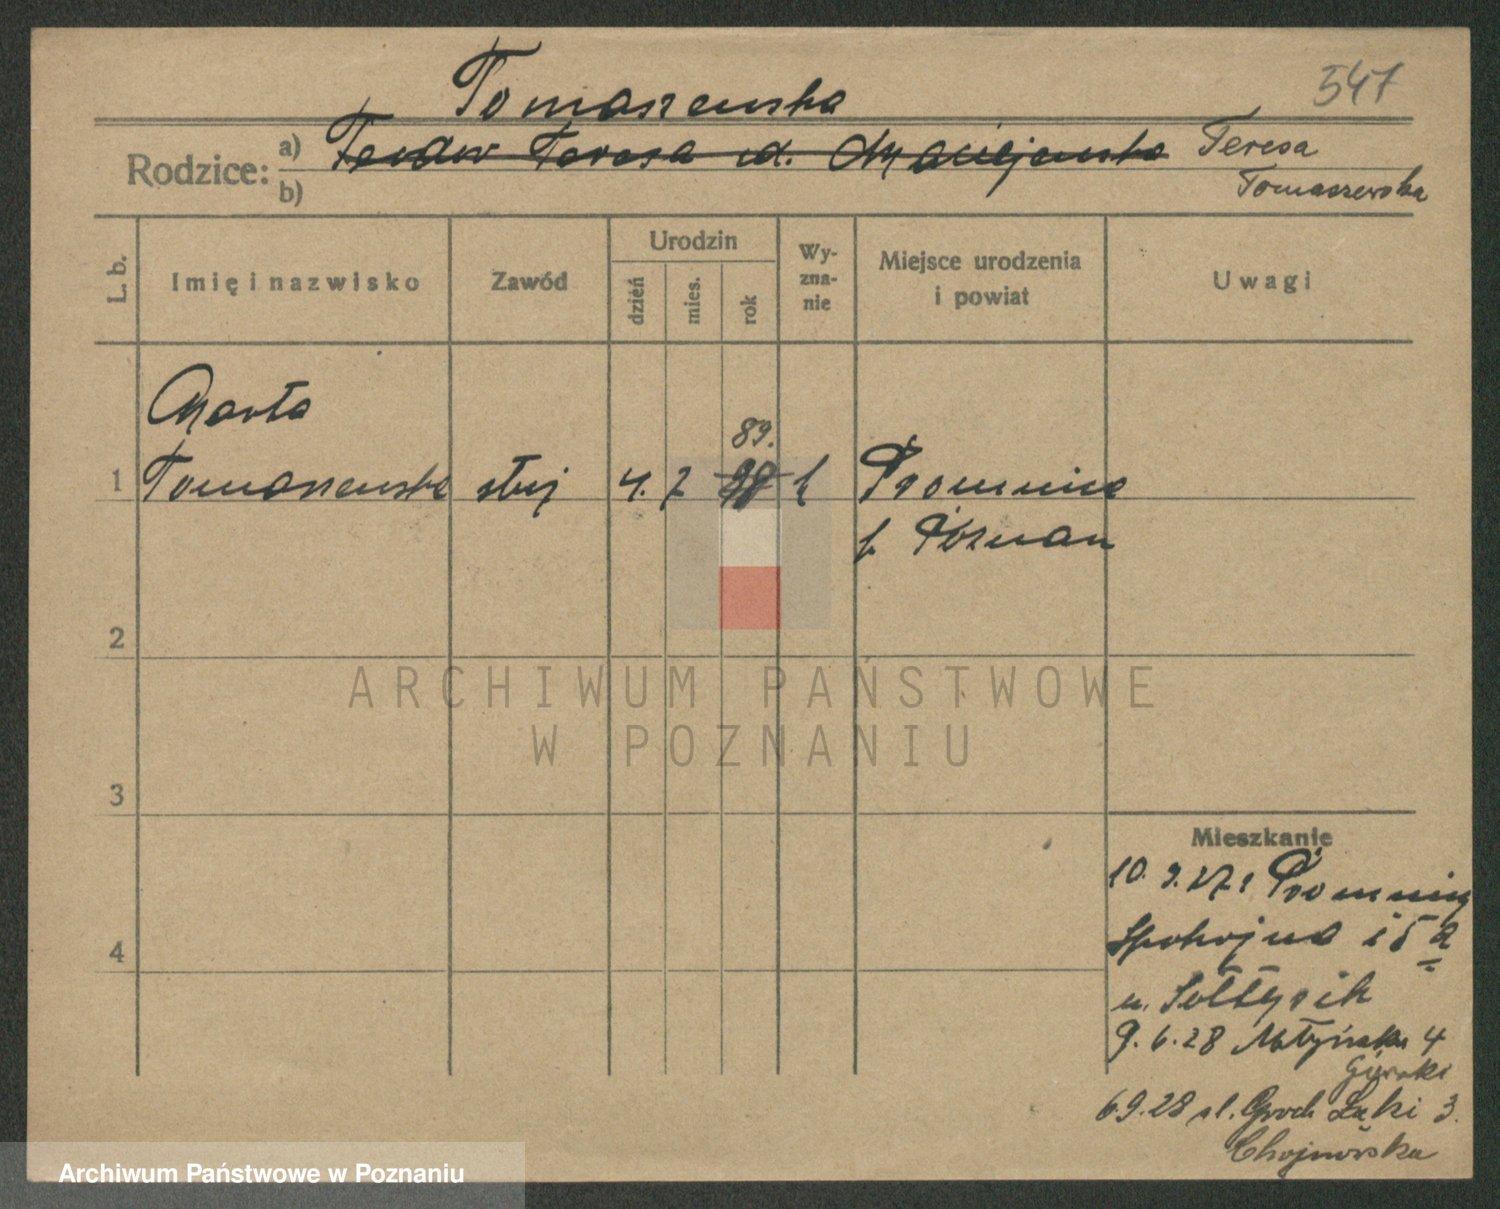 547
Tomaszewska
Rodzice: a) Teodor Teresa zd. Maciejewska Teresa
b) Tomaszewska
L. b. Imię i nazwisko Zawód Urodzin dzień mies. rok Wy-zna-nie Miejsce urodzenia i powiat Uwagi
Marta
89.
1 Tomaszewska służ 4. 7 98 k Promnice
p. Poznan
2
3
4
Mieszkanie
10. 9. 27 z Promnic
Spokojna 15 a
u. Sołtysik
9. 6. 28 Młyńska 4
Górski
6.9.28 Groch Łąki 3.
Chojnowska
ARCHIWUM PAŃSTWOWE
W POZNANIU
Archiwum Państwowe w Poznaniu